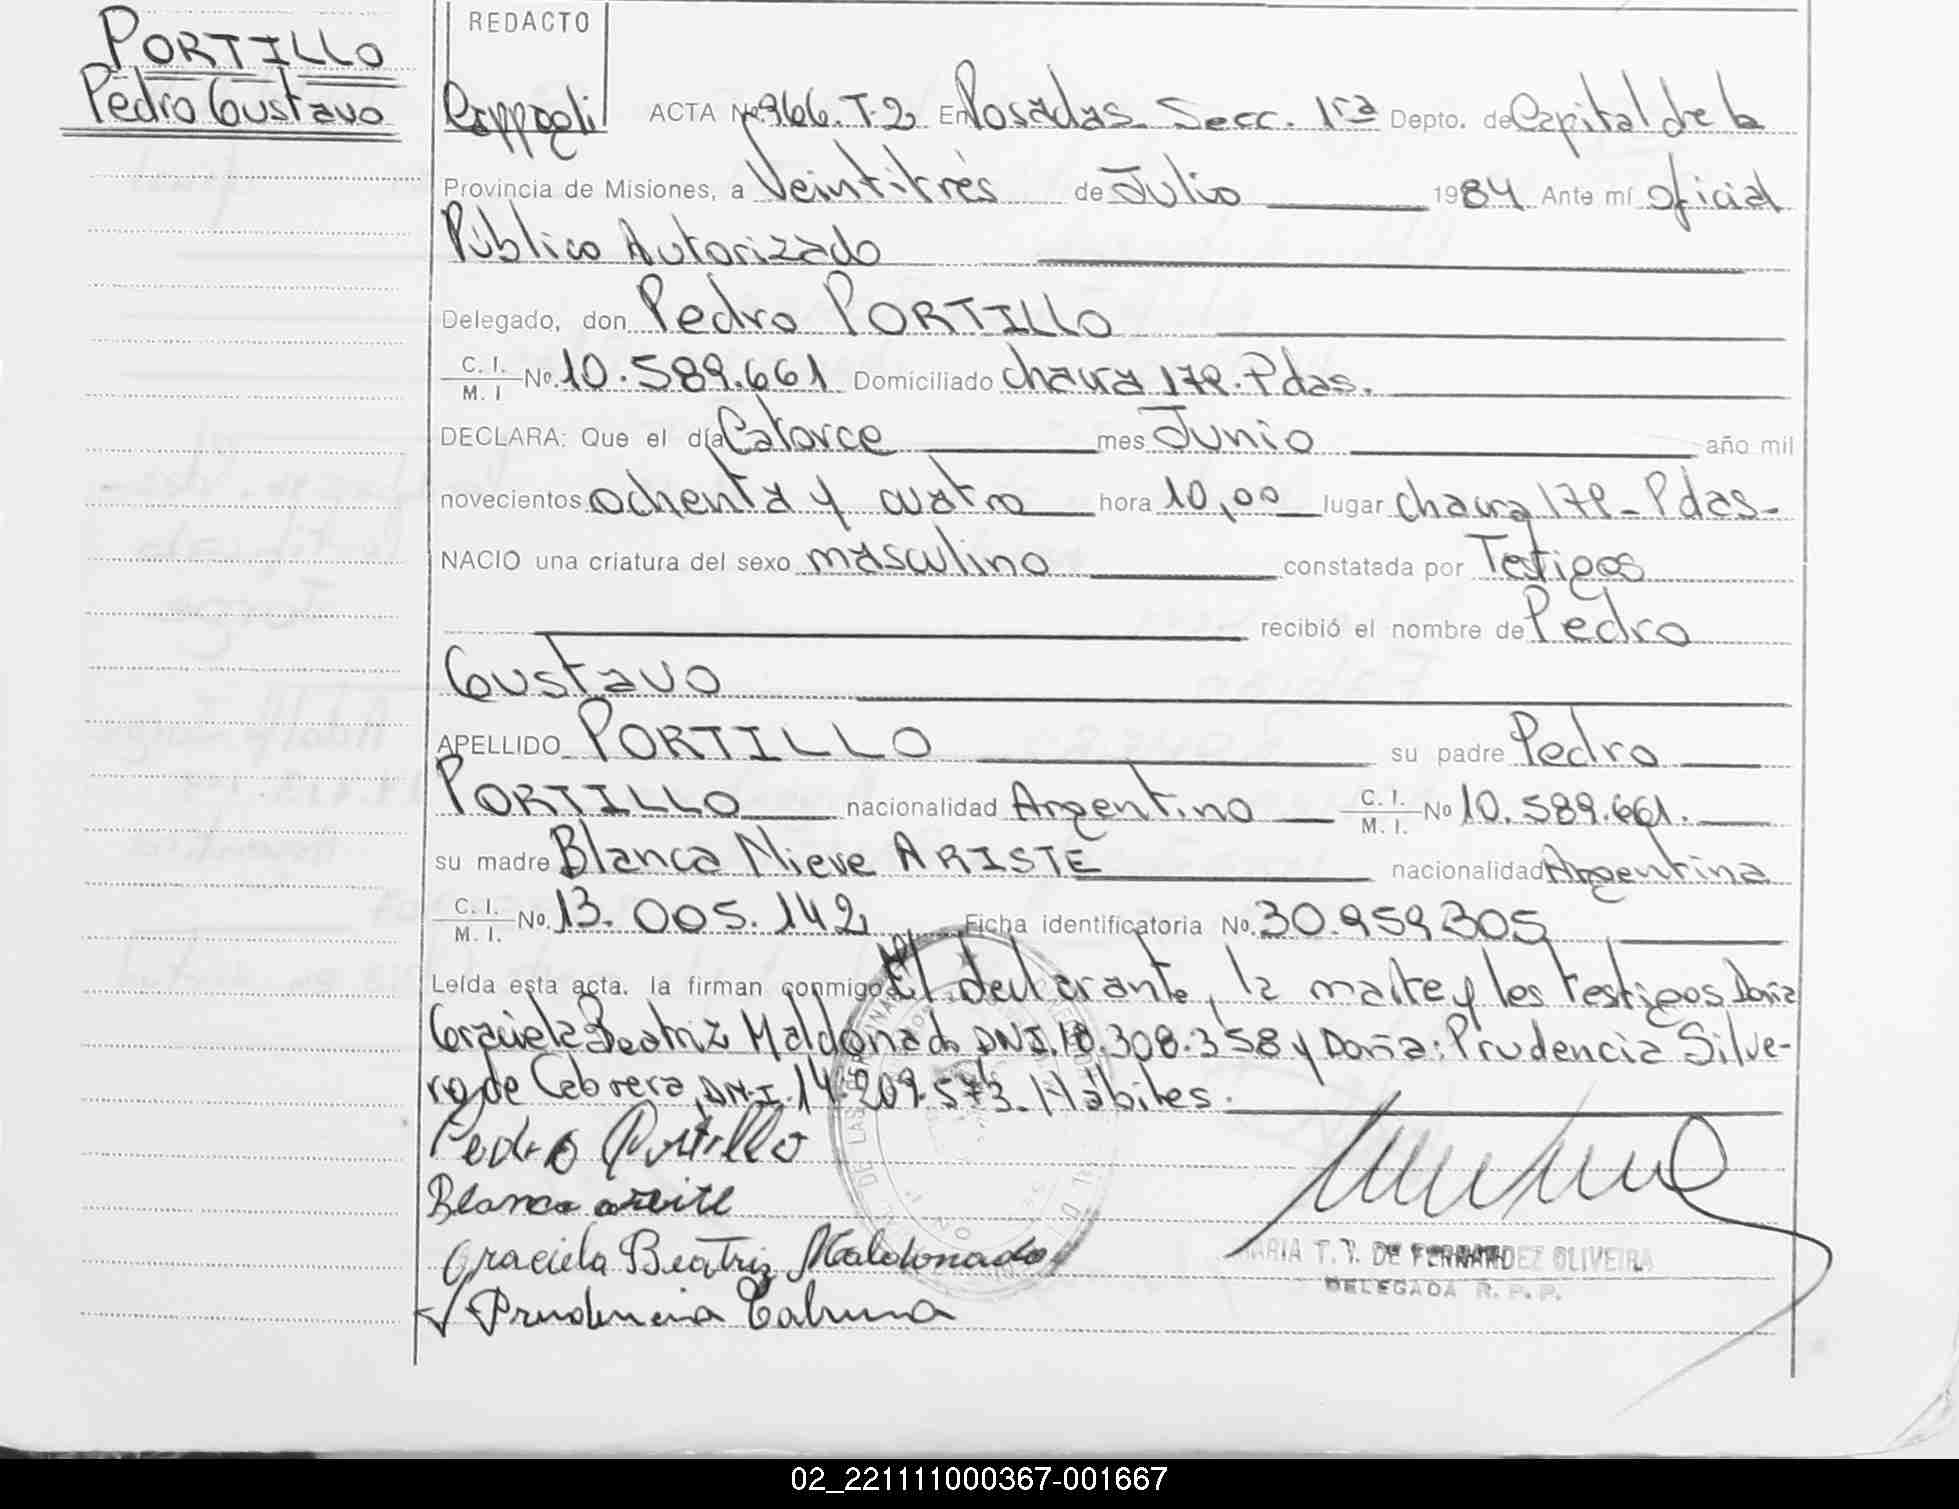 PORTILLO
Pedro Gustavo
REDACTO
ACTA Nº 966. T-2 En Posadas Secc. 1ra Depto. de Capital de la
Provincia de Misiones, a Veintitrés de Julio 1984 Ante mí oficial
Público Autorizado
Delegado, don Pedro PORTILLO
C. I. / M. I. Nº 10.589.661 Domiciliado chacra 178. Pdas.
DECLARA: Que el día Catorce mes Junio año mil
novecientos ochenta y cuatro hora 10,00 lugar chacra 178 - Pdas-
NACIO una criatura del sexo masculino constatada por Testigos
recibió el nombre de Pedro
Gustavo
APELLIDO PORTILLO su padre Pedro
PORTILLO nacionalidad Argentino C. I. / M. I. Nº 10.589.661.
su madre Blanca Nieve ARISTE nacionalidad Argentina
C. I. / M. I. Nº 13.005.142 Ficha identificatoria Nº 30.959.305
Leída esta acta, la firman conmigo El declarante, la madre y los testigos Doña
Graciela Beatriz Maldonado DNI. 18.308.358 y Doña: Prudencia Silve-
ro de Cabrera DN.I. 14.209.573. Hábiles.
Pedro Portillo
Blanca
Graciela Beatriz Maldonado
Prudencia
MARIA T. V. DE FERNANDEZ OLIVEIRA
DELEGADA R. P. P.
02_221111000367-001667